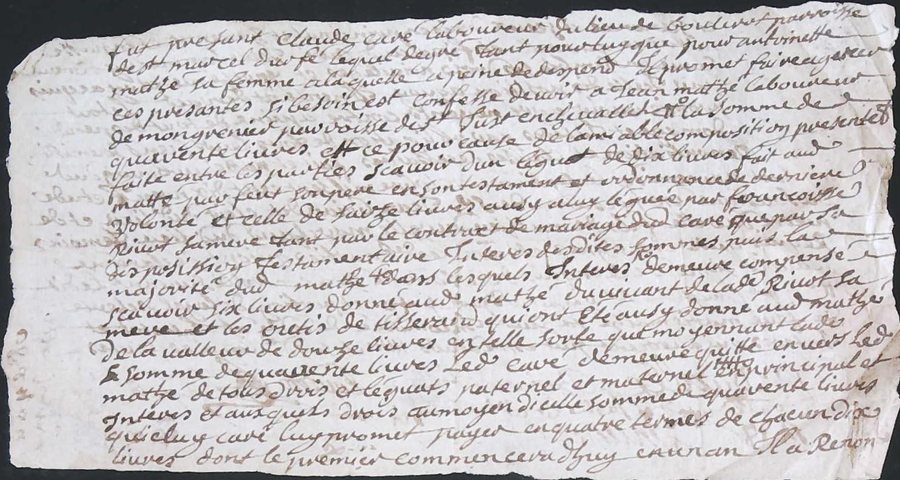 fut presant claude caré laboureur du lieu de boulirat parroisse
de st marcel durfé lequel de gré tant pour luy que pour antoinette
mathé sa femme a laquelle a peine de despend il promet faire agreer
ces presantes si besoin est confesse devoir a Jean mathé laboureur
de mongrenier parroisse de st Just en chevallet la somme de
quarente livres et ce pour cause de lamiable composition presentemt
faite entre les parties scavoir dun legat de dix livres fait aud
matté par feut son pere en son testament et ordonance de derniere
volonté et celle de saitze livres aussy a luy leguée par francoisse
Riuot sa mere tant par le contract de mariage dud caré que par sa
disposition testamentaire Interes desdites sommes puis la
majorité dud mathé dans lesquels Interes demeure compensé
scavoir six livres donne aud mathé du vivant de lade Riuot sa
mere et les outis de tisserand qui ont été aussy donne aud mathé
de la valleur de doutze livres en telle sorte que moyennant lade
somme de quarente livres led caré demeure quitte envers led
mathé de tous drois et leguats paternel et maternel en principal et
Interes et ausquels drois au moyen dicelle somme de quarente livres
quiceluy caré luy promet payer en quatre termes de chacun dix
livres dont le premier commencera dhuy en un an Il a Renon